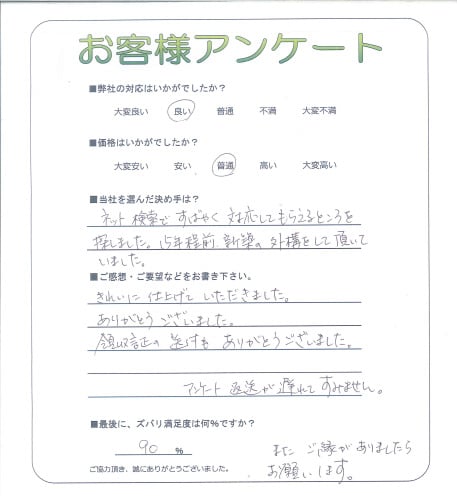 お客様アンケート
■弊社の対応はいかがでしたか？
大変良い 良い 普通 不満 大変不満
■価格はいかがでしたか？
大変安い 安い 普通 高い 大変高い
■当社を選んだ決め手は？
ネット検索で すばやく 対応してもらえるところを
探しました。15年程前 新築の外構をして頂いて
いました。
■ご感想・ご要望などをお書き下さい。
きれいに仕上げて いただきました。
ありがとうございました。
領収証の送付も ありがとうございました。
アンケート 返送が遅れて すみません。
■最後に、ズバリ満足度は何%ですか？
90 %
また ご縁がありましたら
お願いします。
ご協力頂き、誠にありがとうございました。